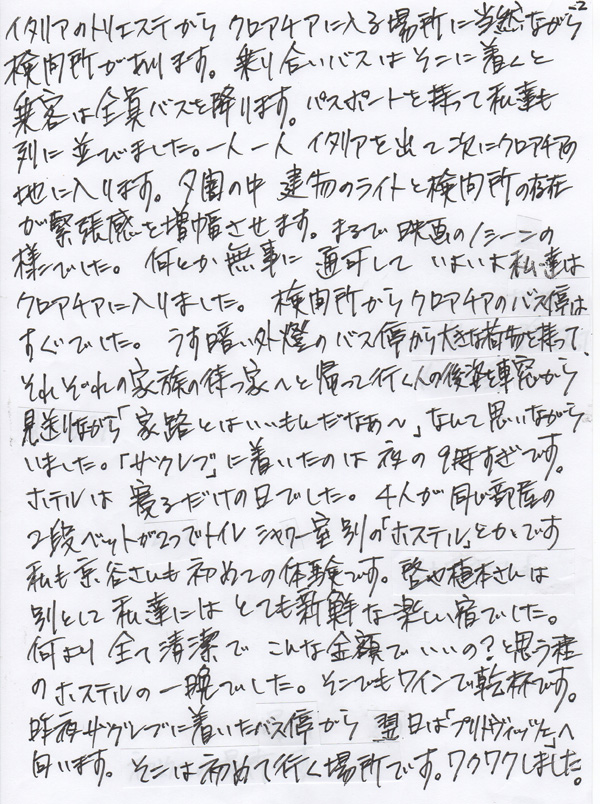 -2
イタリアのトリエステから クロアチアに入る場所に当然ながら
検問所があります。乗り合いバスはそこに着くと
乗客は全員バスを降ります。パスポートを持って私達も
列に並びました。一人一人 イタリアを出て次にクロアチアの
地に入ります。夕闇の中 建物のライトと検問所の存在
が緊張感を増幅させます。まるで映画の1シーンの
様でした。何とか無事に 通可して いよいよ私達は
クロアチアに入りました。検問所からクロアチアのバス停は
すぐでした。うす暗い外燈のバス停から大きな荷物を持って、
それぞれの家族の待つ家へと帰って行く人の後姿を車窓から
見送りながら「家路とはいいもんだなあ〜」なんて思いながら
いました。「ザグレブ」に着いたのは夜の9時すぎです。
ホテルは 寝るだけの日でした。4人が同じ部屋の
2段ベットが2つでトイレ シャワー室別の「ホステル」とかです
私も京谷さんも初めての体験です。啓や植本さんは
別として 私達には とても新鮮な楽しい宿でした。
何より 全て清潔で こんな金額でいいの?と思う程
のホステルの一晩でした。そこでもワインで乾杯です。
昨夜ザグレブに着いたバス停から 翌日は「プリトヴィッツェ」へ
向います。そこは初めて行く場所です。ワクワクしました。